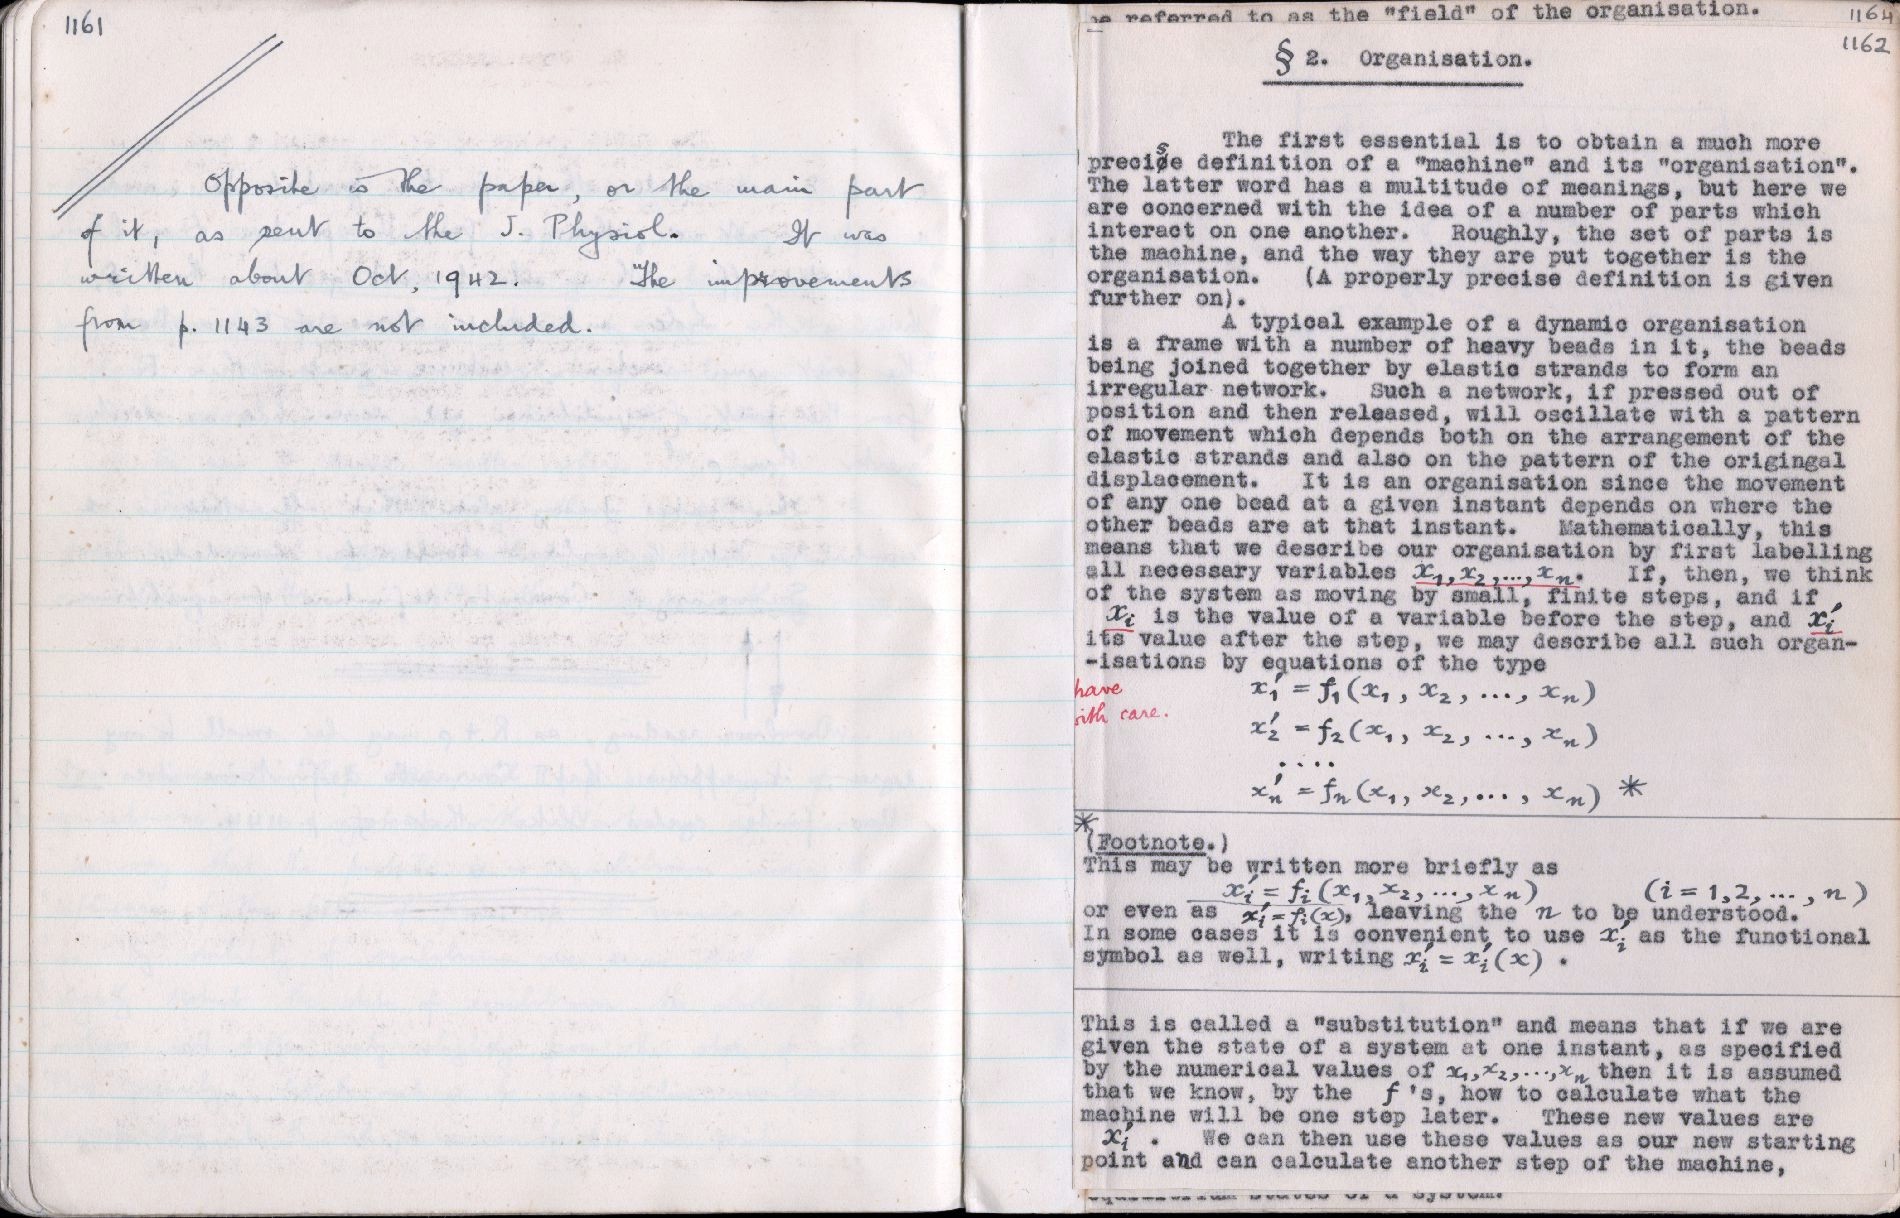 1161
Opposite is the paper, or the main part
of it, as sent to the J. Physiol. It was
written about Oct, 1942. The improvements
from p. 1143 are not included.
be referred to as the "field" of the organisation.
1164
1162
§ 2. Organisation.
The first essential is to obtain a much more
precise definition of a "machine" and its "organisation".
The latter word has a multitude of meanings, but here we
are concerned with the idea of a number of parts which
interact on one another. Roughly, the set of parts is
the machine, and the way they are put together is the
organisation. (A properly precise definition is given
further on).
A typical example of a dynamic organisation
is a frame with a number of heavy beads in it, the beads
being joined together by elastic strands to form an
irregular network. Such a network, if pressed out of
position and then released, will oscillate with a pattern
of movement which depends both on the arrangement of the
elastic strands and also on the pattern of the origingal
displacement. It is an organisation since the movement
of any one bead at a given instant depends on where the
other beads are at that instant. Mathematically, this
means that we describe our organisation by first labelling
all necessary variables x₁, x₂, ..., xₙ. If, then, we think
of the system as moving by small, finite steps, and if
xᵢ is the value of a variable before the step, and xᵢ′
its value after the step, we may describe all such organ-
-isations by equations of the type
have
with care.
x₁′ = f₁(x₁, x₂, ..., xₙ)
x₂′ = f₂(x₁, x₂, ..., xₙ)
....
xₙ′ = fₙ(x₁, x₂, ..., xₙ) *
*
(Footnote.)
This may be written more briefly as
xᵢ′ = fᵢ(x₁, x₂, ..., xₙ) (i = 1,2, ..., n)
or even as xᵢ′ = fᵢ(x), leaving the n to be understood.
In some cases it is convenient to use xᵢ′ as the functional
symbol as well, writing xᵢ′ = xᵢ′(x) .
This is called a "substitution" and means that if we are
given the state of a system at one instant, as specified
by the numerical values of x₁, x₂, ..., xₙ then it is assumed
that we know, by the f 's, how to calculate what the
machine will be one step later. These new values are
xᵢ′ . We can then use these values as our new starting
point and can calculate another step of the machine,
equilibrium states of a system.